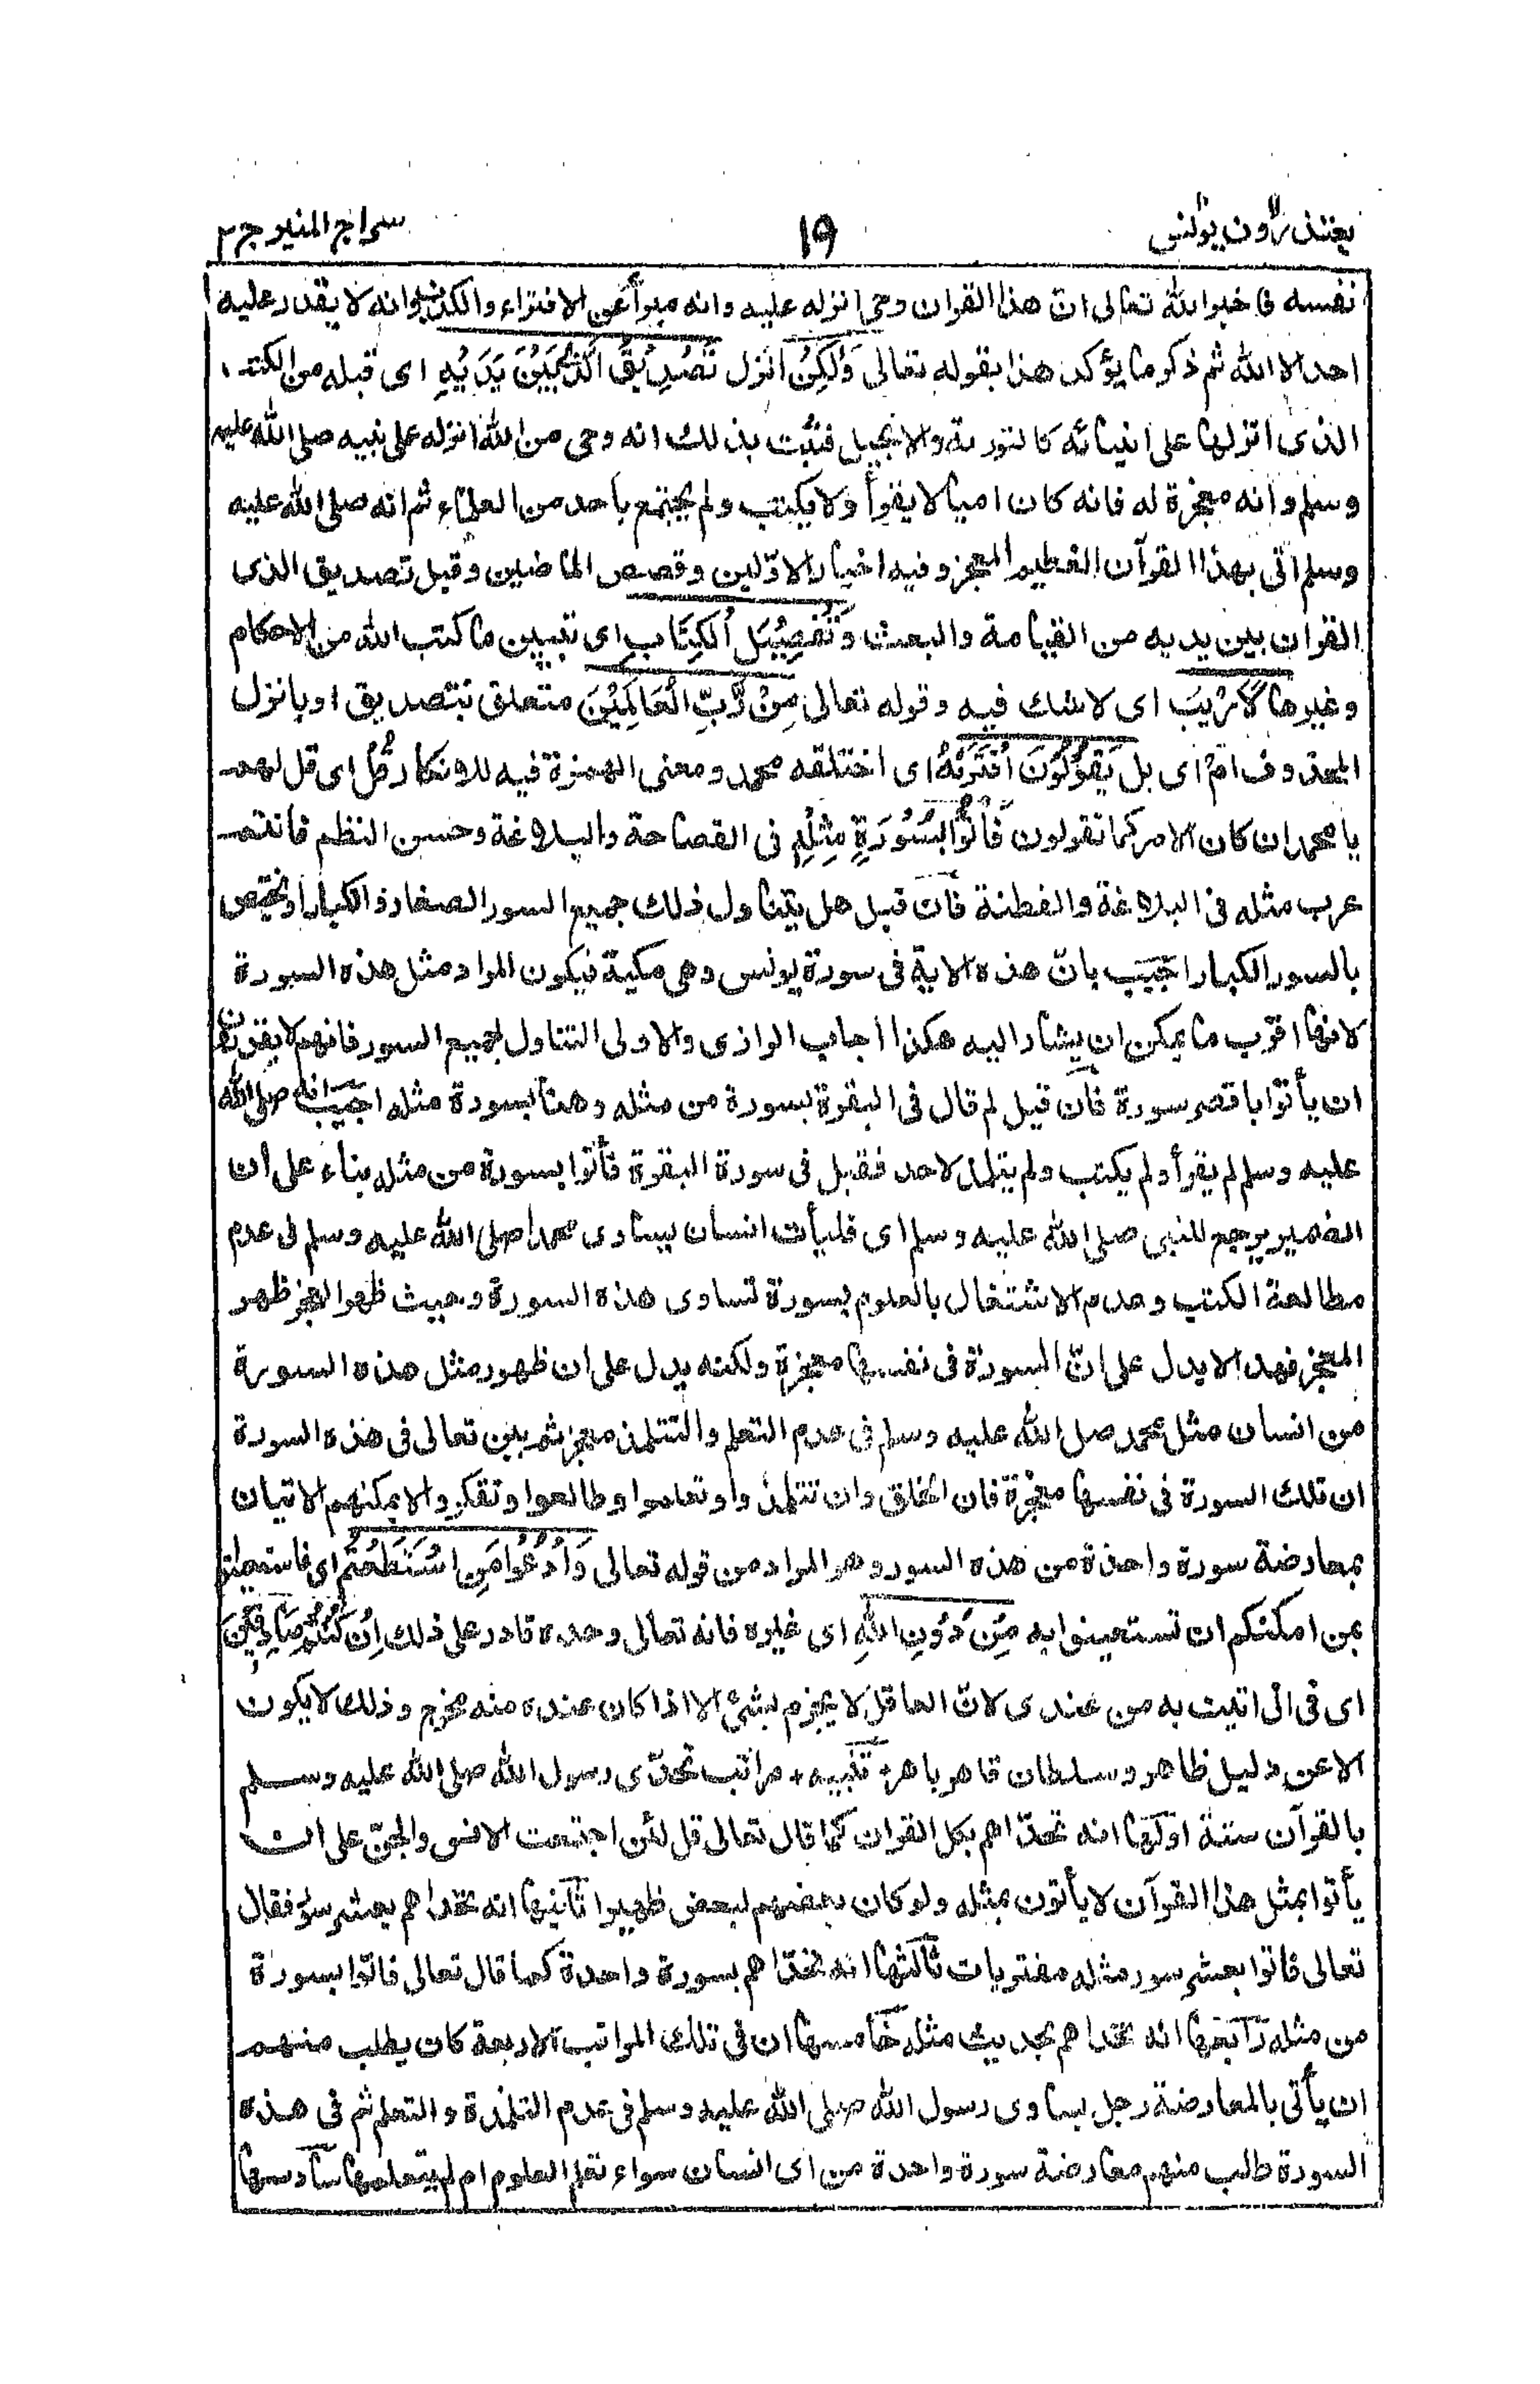 يعتذرون يونس
١٩
سراج المنير ج ٢
نفسه فاخبر الله تعالى انّ هذا القران وحى انزله عليه وانه مبرأ عن الافتراء والكذب وانه لا يقدر عليه
احد الا الله ثم ذكر ما يؤكد هذا بقوله تعالى وَلٰكِنْ انزل تَصْدِيْقَ الَّذِىْ بَيْنَ يَدَيْهِ اى قبله من الكتب
الذى انزلها على انبيائه كالتورىة والانجيل فثبت بذلك انه وحى من الله انزله على نبيه صلى الله عليه
وسلم وانه معجزة له فانه كان اميا لا يقرأ ولا يكتب ولم يجتمع باحد من العلماء ثم انه صلى الله عليه
وسلم اتى بهذا القرآن العظيم المعجز وفيه اخبار الاوّلين وقصص الماضيين وقيل تصديق الذى
القران بين يديه من القيامة والبعث وَتَفْصِيْلَ الْكِتَابِ اى تبيين ما كتب الله من الاحكام
وغيرها لَا رَيْبَ اى لا شك فيه وقوله تعالى مِنْ رَّبِّ الْعَالَمِيْنَ متعلق بتصديق او بانزل
المحذوف امْ اى بل يَقُوْلُوْنَ افْتَرٰىهُ اى اختلقه محمد ومعنى الهمزة فيه للانكار قُلْ اى قل لهم
يا محمد ان كان الامر كما تقولون فَأْتُوْا بِسُوْرَةٍ مِثْلِهِ فى الفصاحة والبلاغة وحسن النظم فانتم
عرب مثله فى البلاغة والفطنة فان قيل هل يتناول ذلك جميع السور الصغار والكبار او يختص
بالسور الكبار اجيب بانّ هذه الاية فى سورة يونس وهى مكية فيكون المراد مثل هذه السورة
لانها اقرب ما يمكن ان يشار اليه هكذا اجاب الرازى والاولى التناول لجميع السور فانهم لا يقدرون
ان يأتوا باقصر سورة فان قيل لم قال فى البقرة بسورة من مثله وهنا بسورة مثله اجيب انه صلى الله
عليه وسلم لم يقرأ ولم يكتب ولم يتلمذ لاحد فقيل فى سورة البقرة فأتوا بسورة من مثله بناء على ان
الضمير يرجع للنبى صلى الله عليه وسلم اى فليأت انسان يساوى محمدا صلى الله عليه وسلم فى عدم
مطالعة الكتب وعدم الاشتغال بالعلوم بسورة تساوى هذه السورة وحيث ظهر العجز ظهر
المعجز فهذا لا يدل على انّ السورة فى نفسها معجزة ولكنه يدل على ان ظهور مثل هذه السورة
من انسان مثل محمد صلى الله عليه وسلم فى عدم التعلم والتتلمذ معجز ثم بين تعالى فى هذه السورة
ان تلك السورة فى نفسها معجزة فان الخلق وان تتلمذوا وتعلموا وطالعوا وتفكروا لا يمكنهم الاتيان
بمعارضة سورة واحدة من هذه السور وهو المراد من قوله تعالى وَادْعُوْا مَنِ اسْتَطَعْتُمْ اى فاستعينوا
بمن امكنكم ان تستعينوا به مِّنْ دُوْنِ اللهِ اى غيره فانه تعالى وحده قادر على ذلك اِنْ كُنْتُمْ صَادِقِيْنَ
اى فى انى اتيت به من عندى لانّ العاقل لا يجزم بشئ الا اذا كان عنده منه مخرج وذلك لا يكون
الا عن دليل ظاهر وسلطان قاهر باهر + تنبيه + مراتب تحدّى رسول الله صلى الله عليه وسلم
بالقرآن ستة اولها انه تحدّاهم بكل القران كما قال تعالى قل لئن اجتمعت الانس والجنّ على ان
يأتوا بمثل هذا القرآن لا يأتون بمثله ولو كان بعضهم لبعض ظهيرا ثانيها انه تحداهم بعشر سور فقال
تعالى فاتوا بعشر سور مثله مفتريات ثالثها انه تحدّاهم بسورة واحدة كما قال تعالى فاتوا بسورة
من مثله رابعها انه تحداهم بحديث مثله خامسها ان فى تلك المراتب الاربعة كان يطلب منهم
ان يأتى بالمعارضة رجل يساوى رسول الله صلى الله عليه وسلم فى عدم التلمذة والتعلم ثم فى هذه
السورة طلب منهم معارضة سورة واحدة من اى انسان سواء تعلم العلوم ام لم يتعلمها سادسها